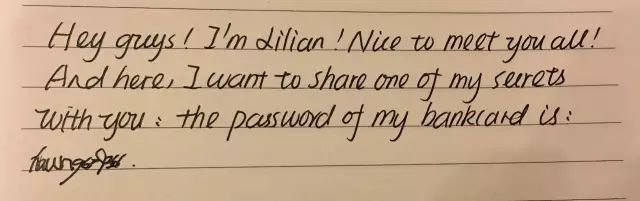 Hey guys! I'm Lilian! Nice to meet you all!
And here, I want to share one of my secrets
with you: the password of my bankcard is: